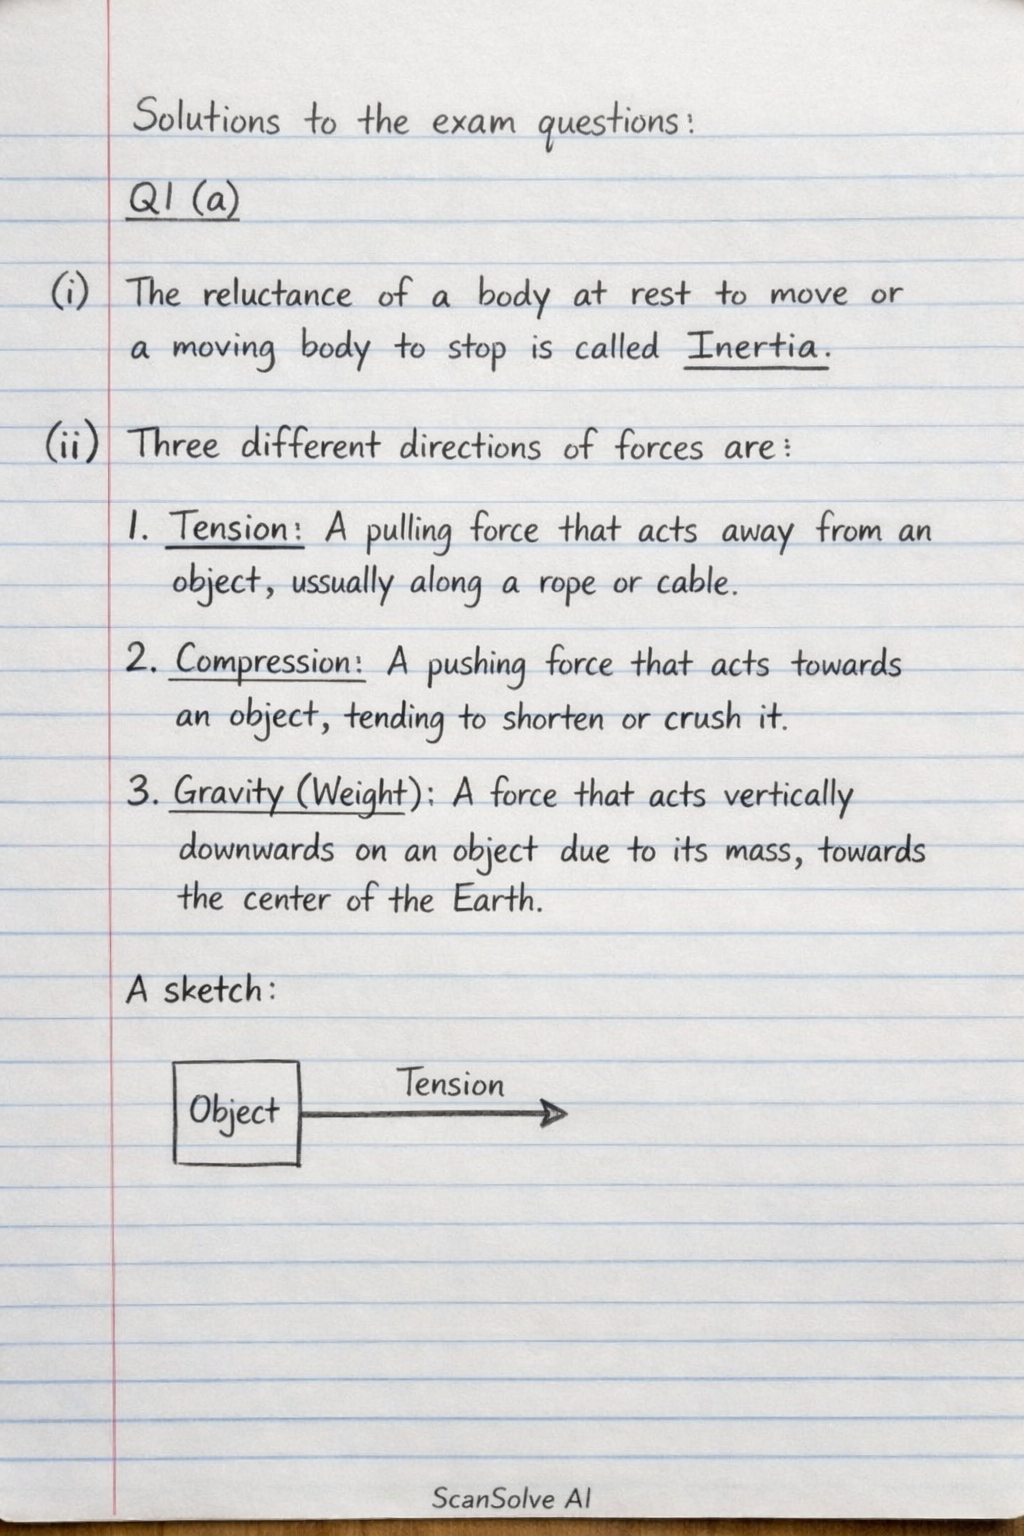 Solutions to the exam questions:
Q1 (a)
(i) The reluctance of a body at rest to move or
a moving body to stop is called Inertia.
(ii) Three different directions of forces are:
1. Tension: A pulling force that acts away from an
object, ussually along a rope or cable.
2. Compression: A pushing force that acts towards
an object, tending to shorten or crush it.
3. Gravity (Weight): A force that acts vertically
downwards on an object due to its mass, towards
the center of the Earth.
A sketch:
Tension
Object
ScanSolve AI